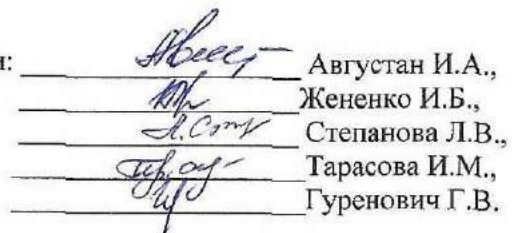 и: Августан И.А.,
Жененко И.Б.,
Л.Степ Степанова Л.В.,
Тарасова И.М.,
Гуренович Г.В.